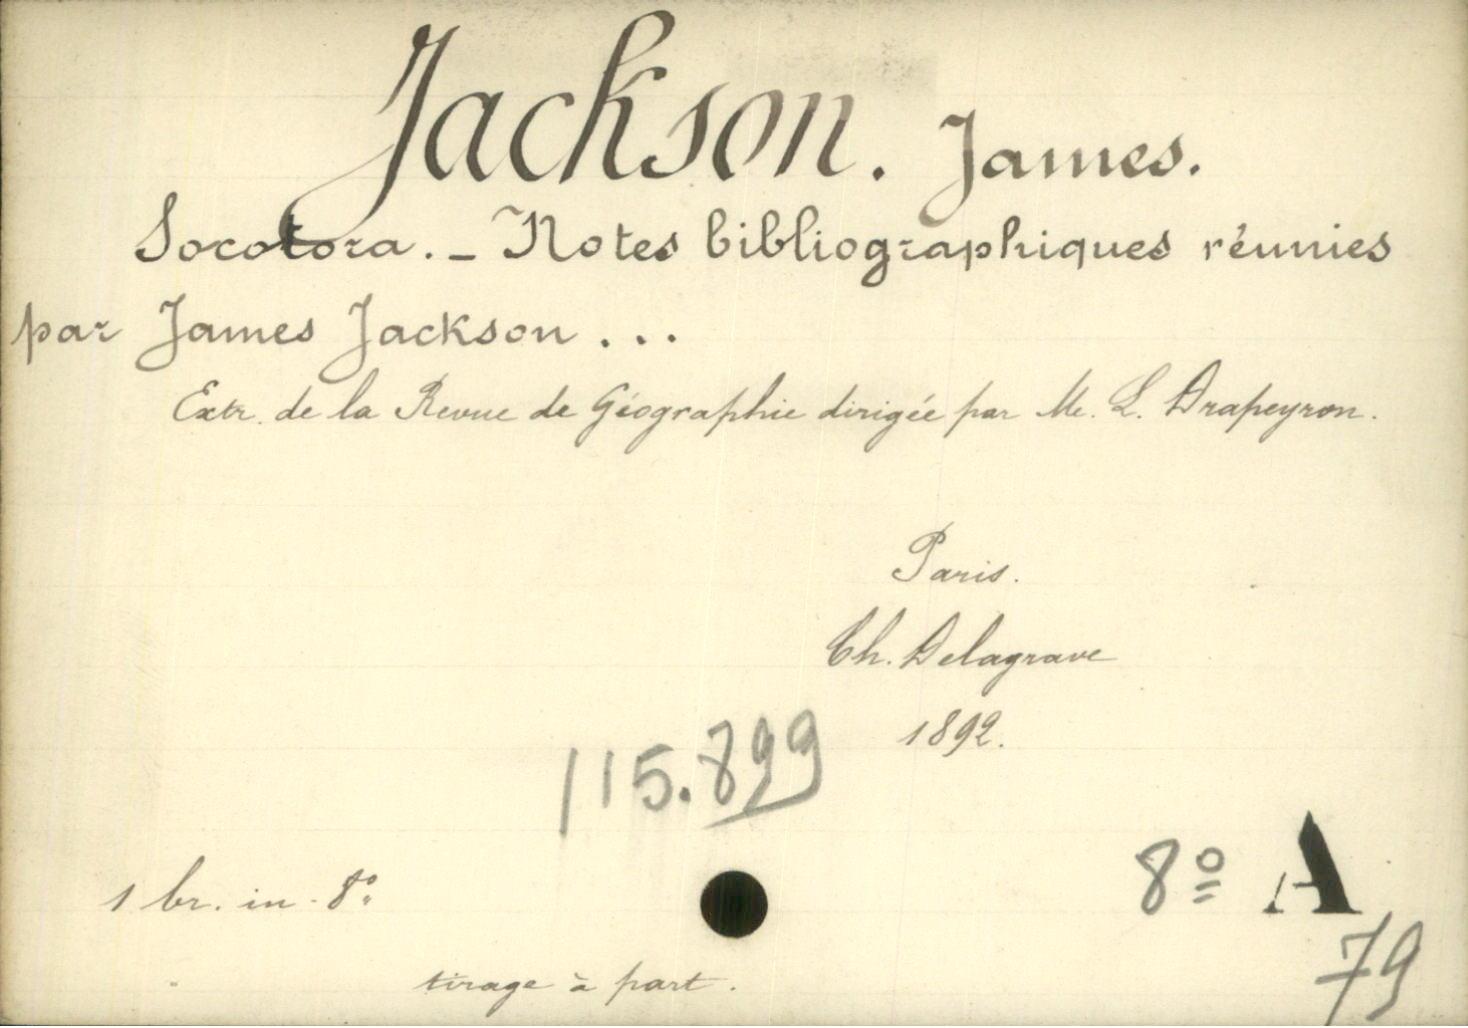 Jackson. James.
Socotora. - Notes bibliographiques réunies
par James Jackson ...
Extr. de la Revue de Géographie dirigée par M. L. Drapeyron.
Paris.
Ch. Delagrave
1892.
115.899
1 br. in-8°
8º A
79
tirage à part.